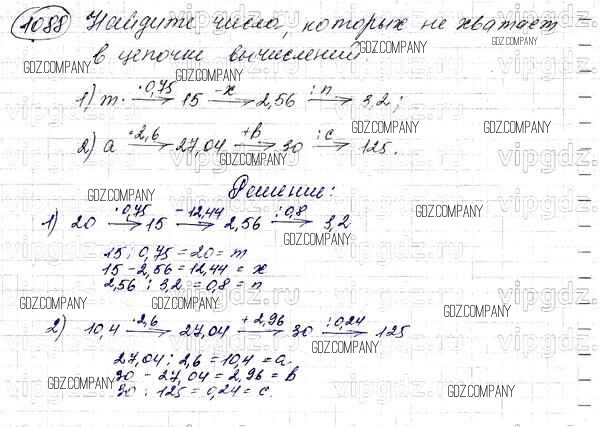 1088 Найдите числа, которых не хватает
в цепочке вычислений
1) m ·0,75→ 15 -x→ 2,56 :n→ 3,2;
2) a ·2,6→ 27,04 +b→ 30 :c→ 125.
Решение:
1) 20 ·0,75→ 15 -12,44→ 2,56 :0,8→ 3,2
15 : 0,75 = 20 = m
15 - 2,56 = 12,44 = x
2,56 : 3,2 = 0,8 = n
2) 10,4 ·2,6→ 27,04 +2,96→ 30 :0,24→ 125
27,04 : 2,6 = 10,4 = a.
30 - 27,04 = 2,96 = b
30 : 125 = 0,24 = c.
GDZ.COMPANY
vipgdz.ru